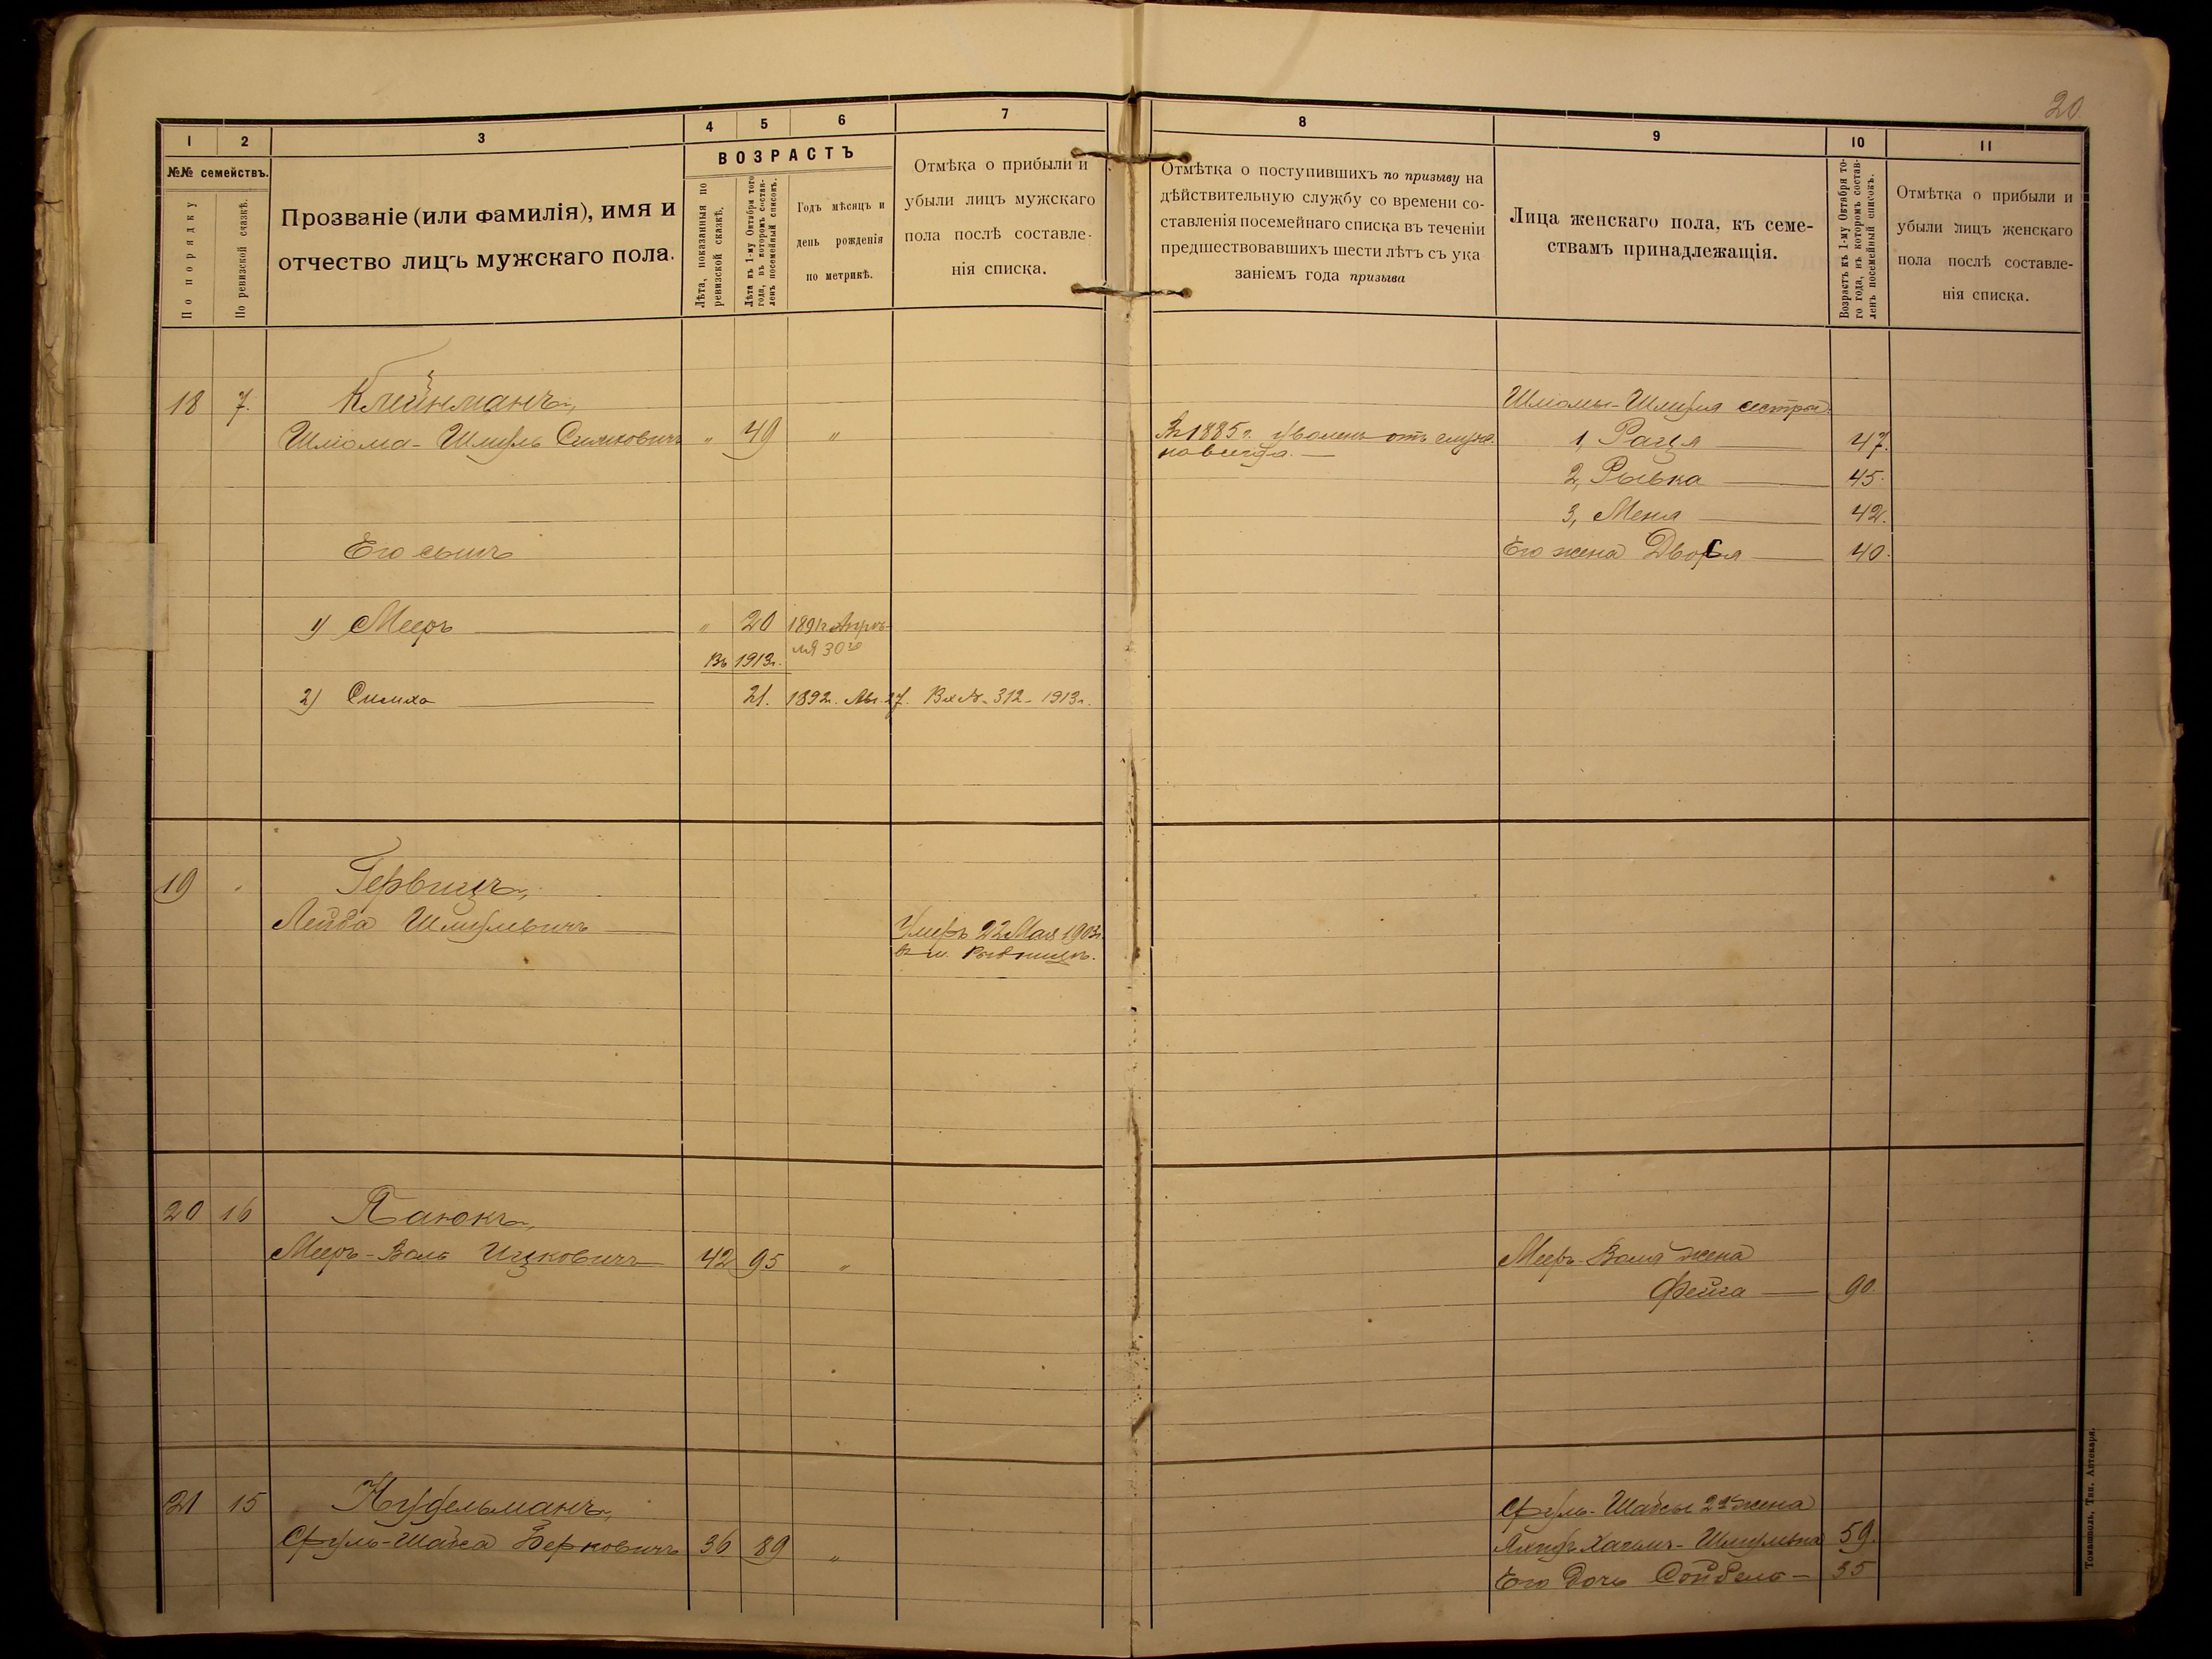 20
1
2
3
4
5
6
7
8
9
10
11
№№ семействъ.
По порядку
По ревизской сказкѣ.
Прозваніе (или фамилія), имя и
отчество лицъ мужскаго пола.
ВОЗРАСТЪ
Лѣта, показанныя по
ревизской сказкѣ.
Лѣта къ 1-му Октября того
года, въ которомъ состав-
ленъ посемейный списокъ.
Годъ мѣсяцъ и
день рожденія
по метрикѣ.
Отмѣка о прибыли и
убыли лицъ мужскаго
пола послѣ составле-
нія списка.
Отмѣтка о поступившихъ по призыву на
дѣйствительную службу со времени со-
ставленія посемейнаго списка въ теченіи
предшествовавшихъ шести лѣтъ съ ука
заніемъ года призыва
Лица женскаго пола, къ семе-
ствамъ принадлежащія.
Возрастъ къ 1-му Октября то-
го года, въ которомъ состав-
ленъ посемейный списокъ.
Отмѣтка о прибыли и
убыли лицъ женскаго
пола послѣ составле-
нія списка.
18 7. Клейнманъ,
Шлома-Шмуль Симховичъ " 49 "
Въ 1885 г. уволенъ отъ служ.
навсегда.
Шломы-Шмуля сестры:
1, Рация 47.
2, Рывка 45.
3, Меня 42.
Его жена Двося 40.
Его сынъ
1) Мееръ " 20 1891 г. Апрѣ-
ля 30го
Въ 1913 г.
2) Симха 21. 1892 г. Авг. 27. Вх. № 312 - 1913 г.
19 " Гервицъ,
Лейба Шмулевичъ
Умеръ 22 Мая 1903 г.
въ м. Рыбницѣ.
20 16 Панокъ,
Мееръ-Воль Ицковичъ 42 95 "
Мееръ-Воля жена
Фейга 90.
21 15 Нудельманъ,
Сруль-Шая Берковичъ 36 89 "
Сруль-Шаи 2я жена
Хаимъ-Шмулевна 59.
Его дочь Сойбель 35
Томашполь, Тип. Аптекаря.